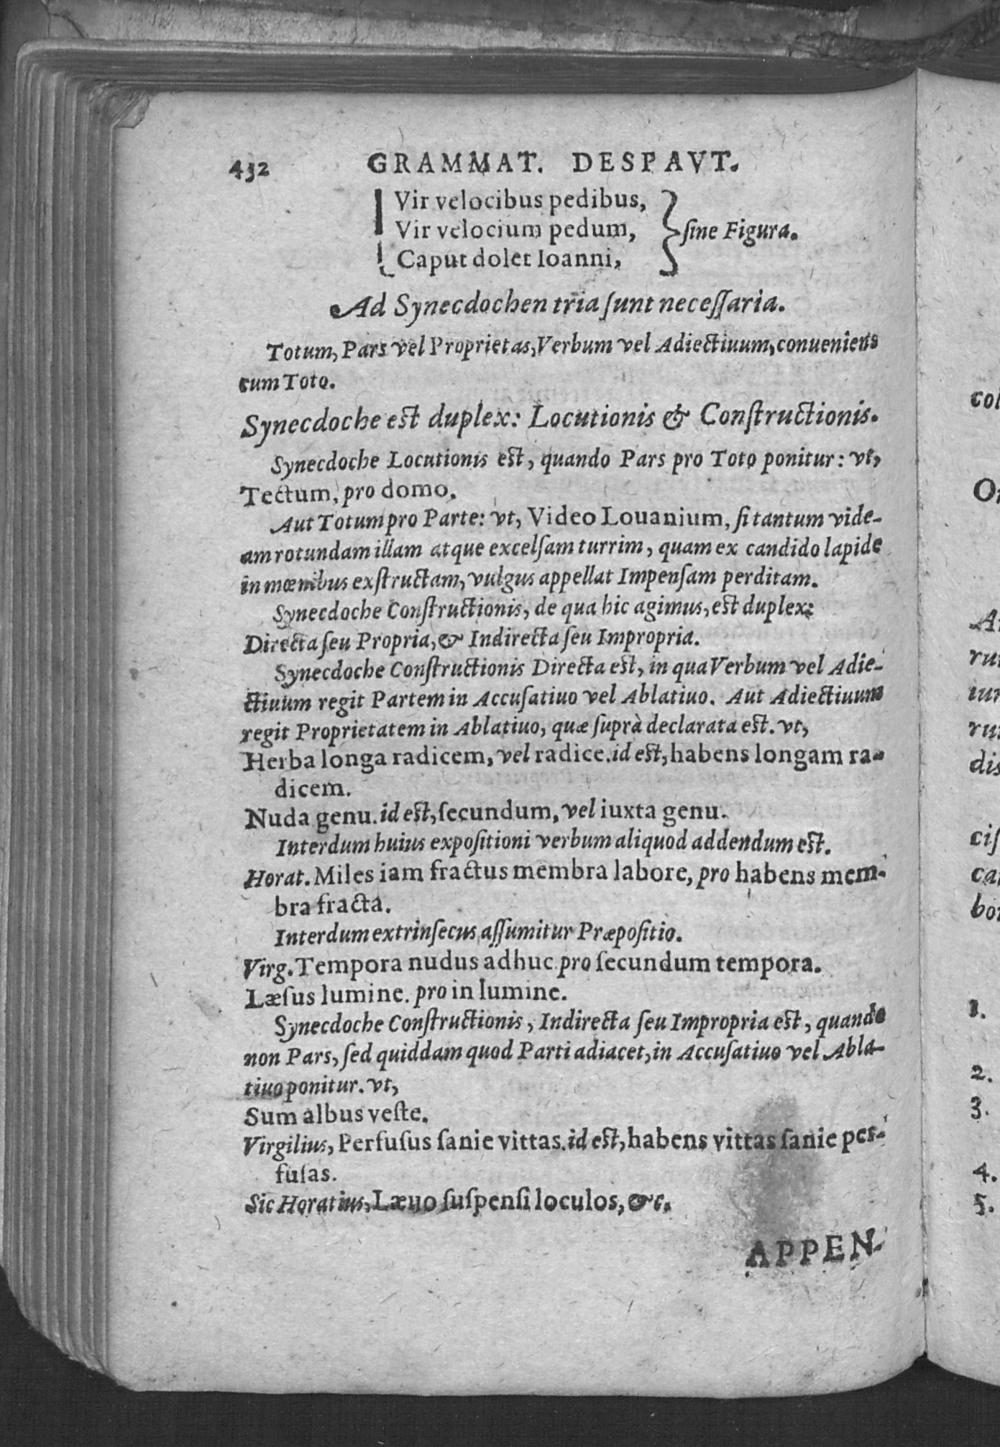 432 GRAMMAT. DESPAVT.
Vir velocibus pedibus,
Vir velocium pedum, sine Figura.
Caput dolet Ioanni,
Ad Synecdochen tria sunt necessaria.
Totum, Pars vel Proprietas, Verbum vel Adiectiuum, conueniens
cum Toto.
Synecdoche est duplex: Locutionis & Constructionis.
Synecdoche Locutionis est, quando Pars pro Toto ponitur: vt,
Tectum, pro domo.
Aut Totum pro Parte: vt, Video Louanium, si tantum vide-
am rotundam illam atque excelsam turrim, quam ex candido lapide
in mœnibus exstructam, vulgus appellat Impensam perditam.
Synecdoche Constructionis, de qua hic agimus, est duplex:
Directa seu Propria, & Indirecta seu Impropria.
Synecdoche Constructionis Directa est, in qua Verbum vel Adie-
ctiuum regit Partem in Accusatiuo vel Ablatiuo. Aut Adiectiuum
regit Proprietatem in Ablatiuo, quæ suprà declarata est. vt,
Herba longa radicem, vel radice. id est, habens longam ra-
dicem.
Nuda genu. id est, secundum, vel iuxta genu.
Interdum huius expositioni verbum aliquod addendum est.
Horat. Miles iam fractus membra labore, pro habens mem-
bra fracta.
Interdum extrinsecus assumitur Præpositio.
Virg. Tempora nudus adhuc pro secundum tempora.
Læsus lumine. pro in lumine.
Synecdoche Constructionis, Indirecta seu Impropria est, quando
non Pars, sed quiddam quod Parti adiacet, in Accusatiuo vel Abla-
tiuo ponitur. vt,
Sum albus veste.
Virgilius, Perfusus sanie vittas. id est, habens vittas sanie per-
fusas.
Sic Horatius, Læuo suspensi loculos, &c.
APPEN-
col
1.
2.
3.
4.
5.